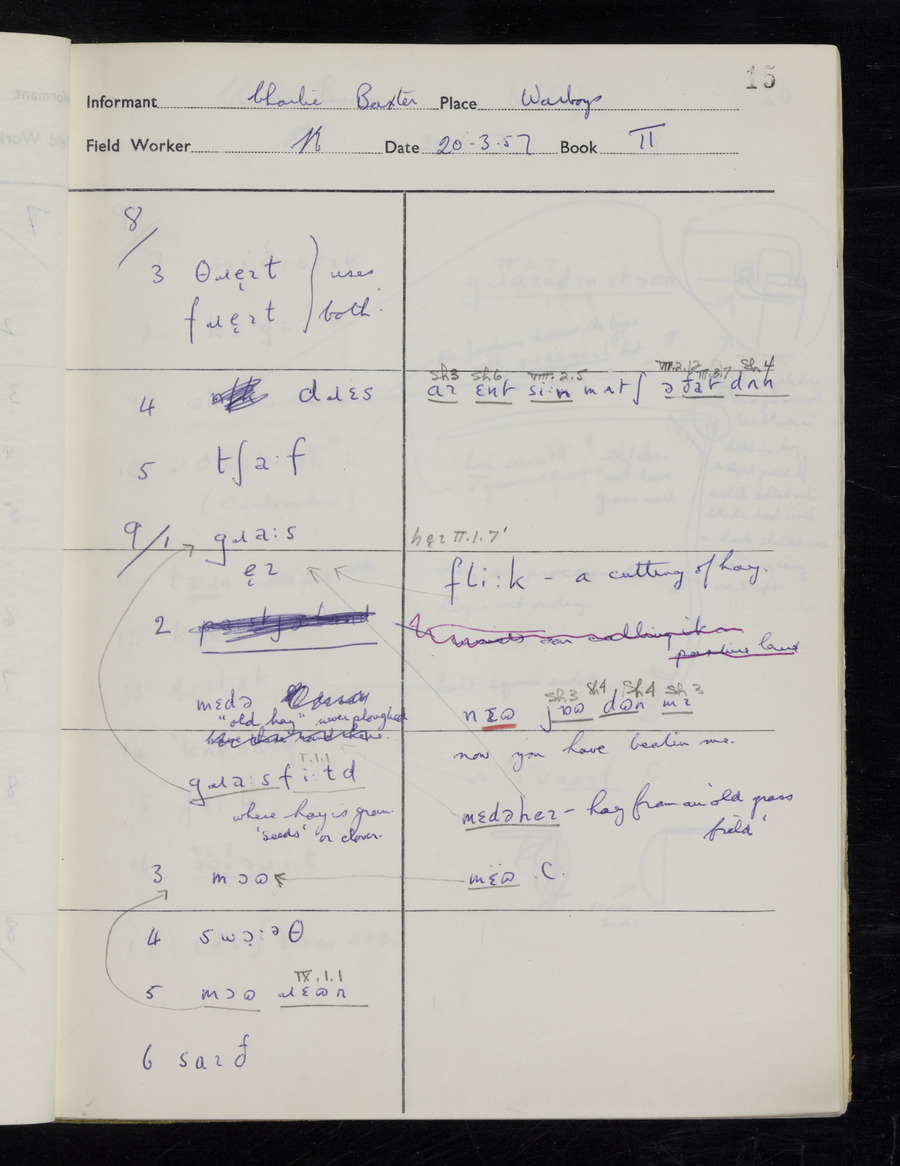 15
Informant Charlie Baxter Place Warboys
Field Worker N Date 20.3.57 Book II
8/
3 θɹẹɪt ) uses
fɹẹɪt ) both.
4 dɹɛs
5 tʃa:f
9/1 gɹa:s
ẹɪ
2
mɛdə
"old hay" never ploughed
I.1.1
gɹa:sfi:ɪd
where hay is grown
'seeds' or clover.
3 mɔɷ
4 swɔ̣:əθ
IX.1.1
5 mɔɷ ɹɛɷn
6 saɪð
Sh3 Sh6 VIII.2.5 VII.2.12 VII.8.7 Sh4
aɪ ɛnt si:n mʌtʃ ə ðat dʌn
hẹɪ II.1.7'
fli:k - a cutting of hay.
pasture land
Sh3 Sh4 Sh4 Sh3
nɛɷ jəɷ dɷn mɪ
now you have beaten me.
mɛdəheɪ - hay from an 'old grass
field'
mɛ̈ɷ .C.